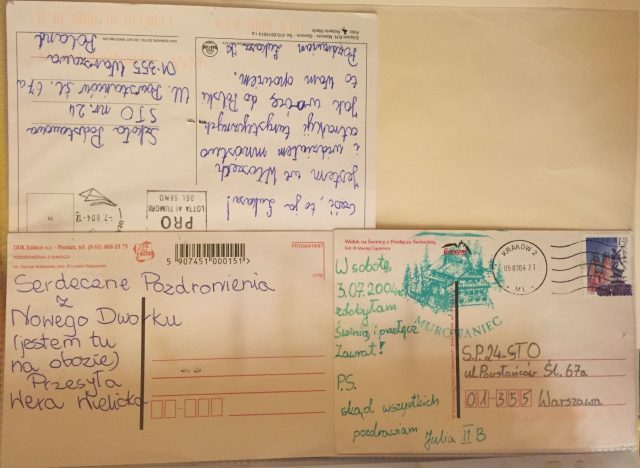 Szkoła Podstawowa
STO nr. 24
Ul. Powstańców śl. 67a
01-355 Warszawa
Poland
PRO
LOTTA AI TUMORI
DEL SENO
Cześć to ja Łukasz!
Jestem we Włoszech
i widziałem mnóstwo
atrakcji turystycznych
Jak wrócę do Polski
to Wam opowiem.
Pozdrawiam Łukasz
DDK Edition s.c. - Poznań, tel. (0 61) 868 65 75
POZDROWIENIA Z WAKACJI
5 907451 000151
1778
Serdeczne Pozdrowienia
z
Nowego Dworku
(jestem tu
na obozie)
Przesyła
Wera Nielicka
Widok na Świnicę z Przełęczy Świnickiej.
Fot. © Maciej Gąsienica
W sobotę,
3.07.2004
zdobyłam
Świnicę i przełęcz
Zawrat!
P.S.
skąd wszystkich
pozdrawiam Julia II B
MUROWANIEC
KRAKÓW 2
S.P. 24 STO
ul. Powstańców Śl. 67a
01-355 Warszawa